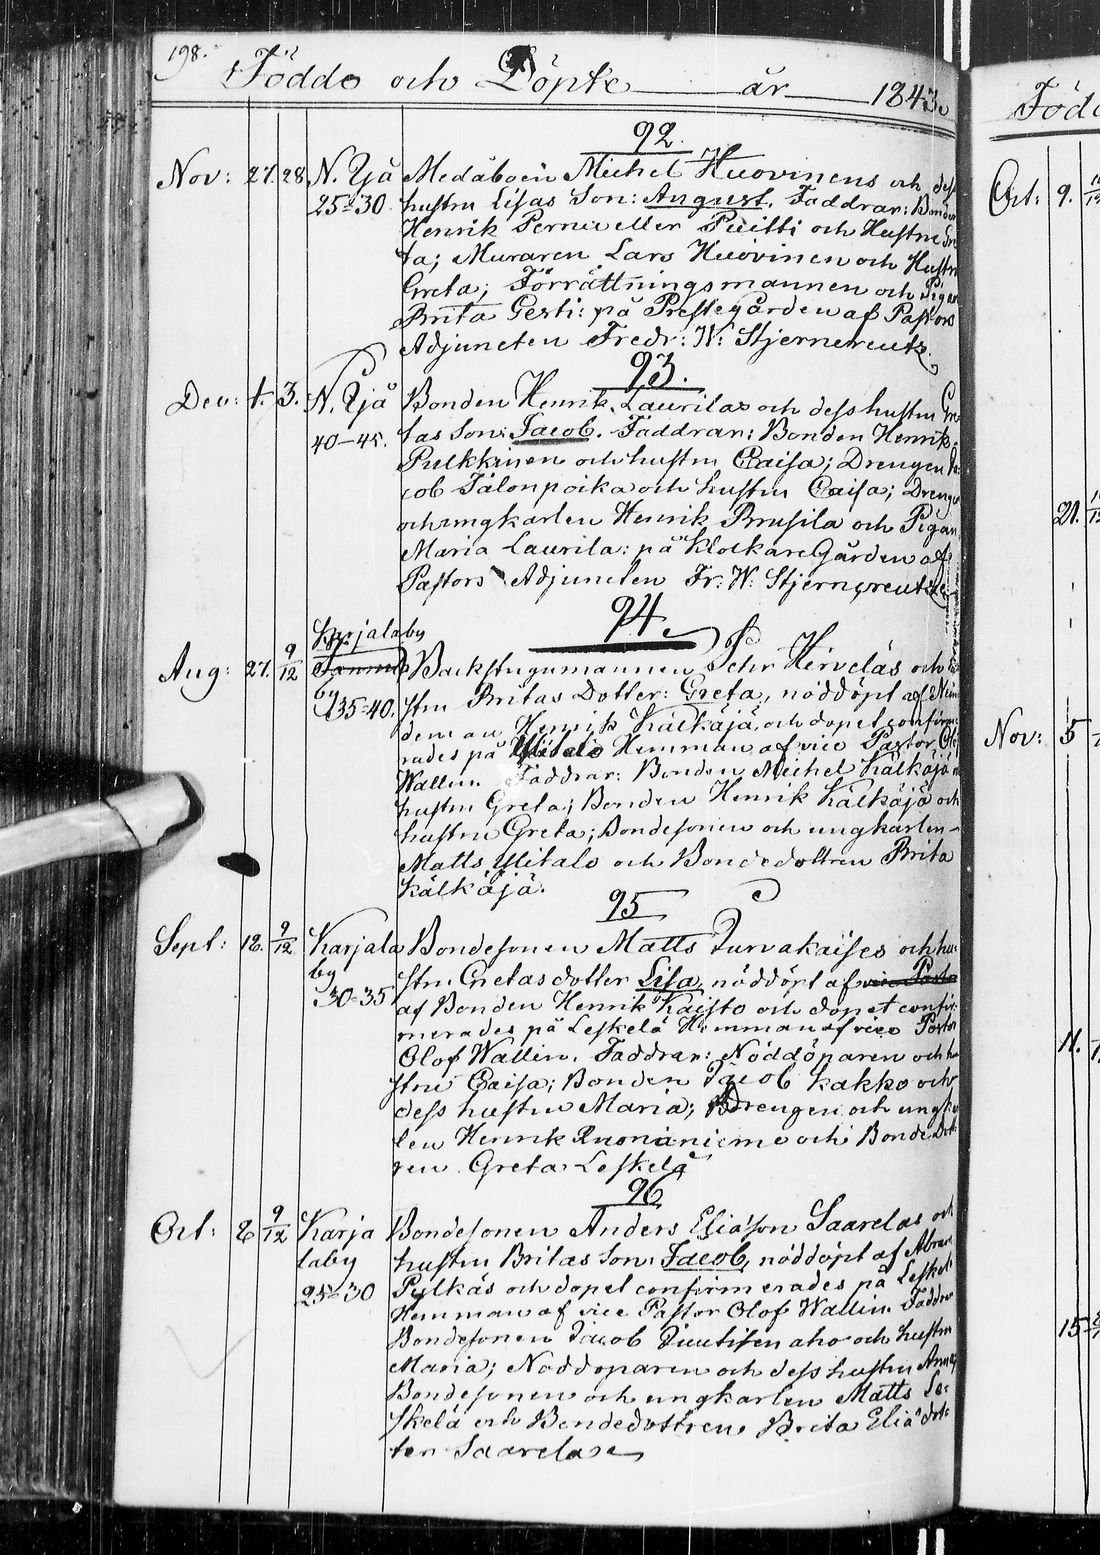 198.
Födde och Döpte år 1843.
92.
Nov: 27. 28 N. Yjä Medåboen Michel Huovinens och dess
25-30. hustru Lisas Son: August. Faddrar: Bonden
Henrik Pernu eller Puitti och Hustru Gre
ta; Muraren Lars Huovinen och Hustru
Greta; Förrättningsmannen och Pigan
Brita Gesti: på Prestegården af Pastors
Adjuncten Fredr: W: Stjernereutz.
93.
Dec: 1. 3. N. Yjä Bonden Henrik Laurilas och dess hustru Gre
40-45. tas Son: Jacob. Faddrar: Bonden Henrik
Pulkkinen och hustru Caisa; Drengen Ja:
cob Jälonpoika och hustru Caisa; Drengen
och ungkarlen Henrik Brusila och Pigan
Maria Laurila: på KlockareGården af
Pastors Adjuncten Fr: W: Stjernereutz
94.
Karjalaby
Aug: 27. 9/12 Backstugumannen Pehr Hirveläs och hu
by
35-40. stru Britas Dotter: Greta, nöddöpt af Näm
deman Henrik Kälkäjä, och dopet confirme
rades på Ylitalo Hemman af vice Pastor Olof
Wallin. Faddrar: Bonden Michel Kälkäjä
hustru Greta; Bonden Henrik Kälkäjä och
hustru Greta; Bondesonen och ungkarlen
Matts Ylitalo och Bondedottren Brita
Kälkäjä.
95
Sept: 12. 9/12 Karjala Bondesonen Matts Turvakaises och hu
by stru Gretas dotter Lisa, nöddöpt af vice Pasto
30-35 af Bonden Henrik Kaisto och dopet confir
merades på Leskelä Hemman af vice Pastor
Olof Wallin. Faddrar: Nöddöparen och hu
stru Caisa; Bonden Jacob Kakko och
dess hustru Maria; Drengen och ungkar
len Henrik Ruonaniemo och Bondedott
ren Greta Leskelä
96
Oct: 2 9/12 Karja Bondesonen Anders Eliasson Saarelas och
laby hustru Britas Son: Jacob, nöddöpt af Abram
25-30 Pylkäs och dopet confirmerades på Leskelä
Hemman af vice Pastor Olof Wallin. Faddrar
Bondesonen Jacob aho och hustru
Maria; Nöddöparen och dess hustru Anna;
Bondesonen och ungkarlen Matts Le:
skelä och Bondedottren Brita Eliä dot:
ter Saarela
Föd
Oct: 9.
21.
Nov: 5
11.
15